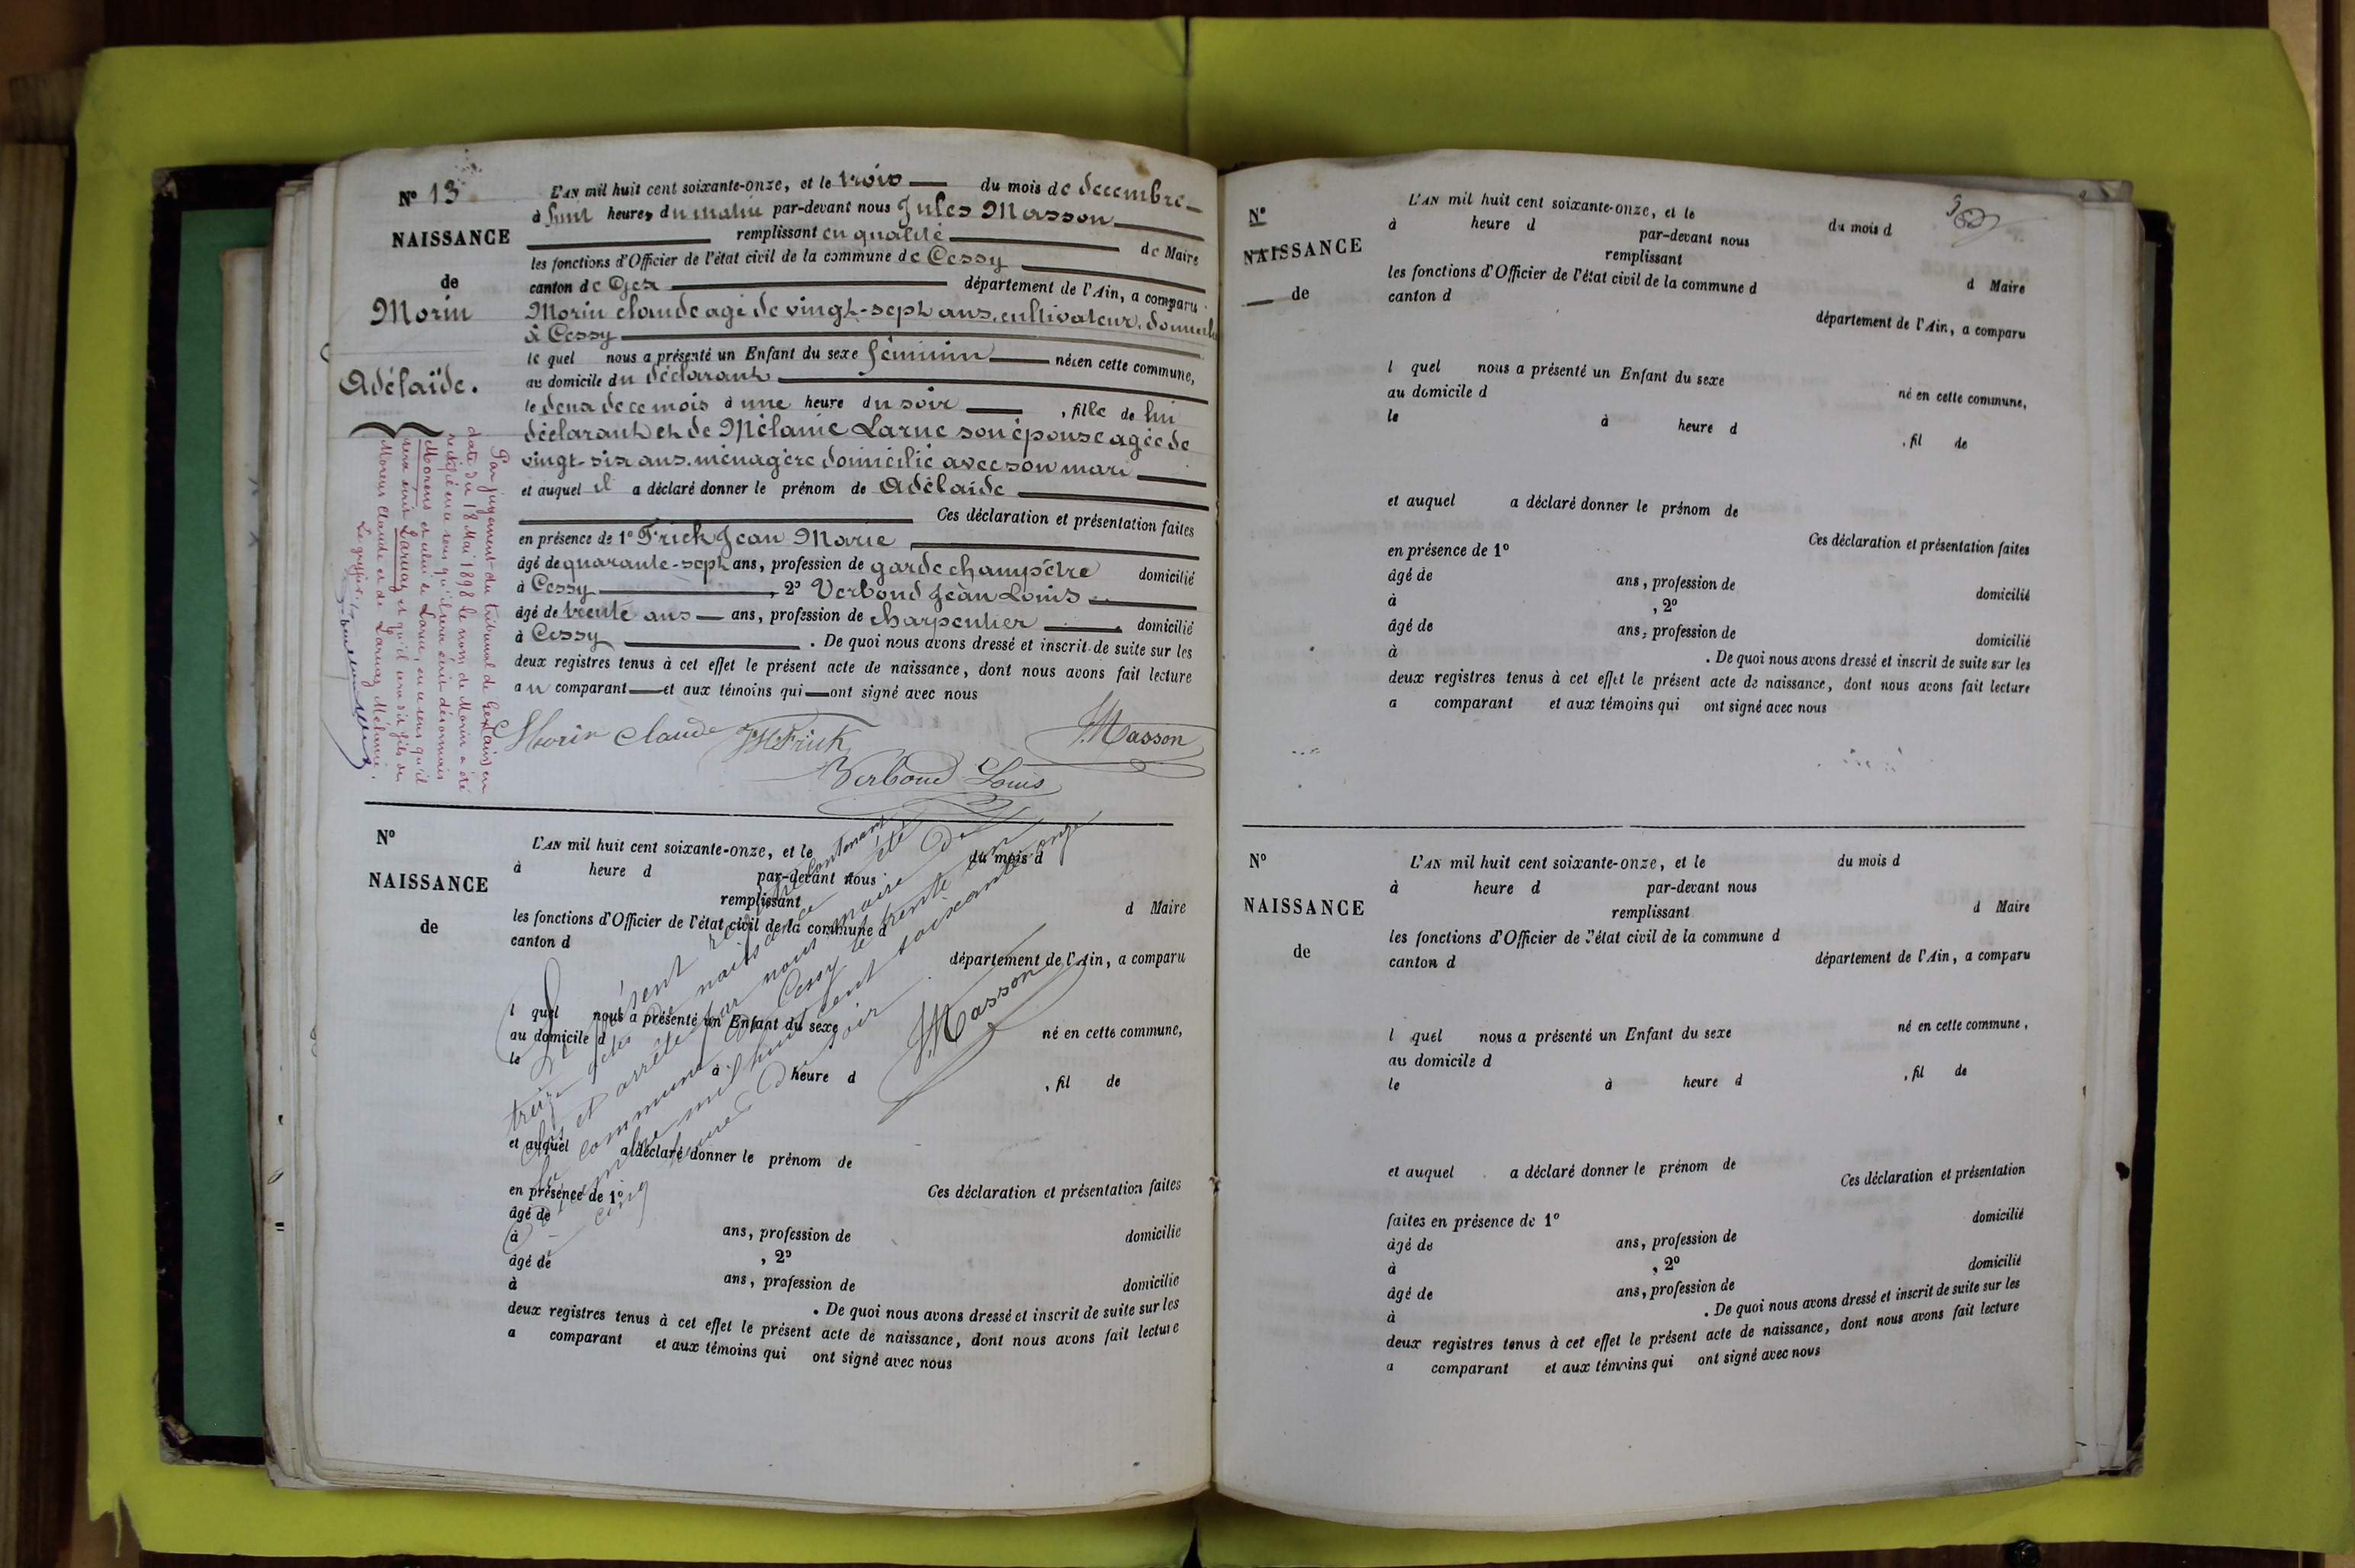 N° 13
NAISSANCE
de
Morin
Adélaïde.
L'AN mil huit cent soixante-onze, et le trois du mois de decembre
à huit heures du matin par-devant nous Jules Masson
remplissant en qualité de Maire
les fonctions d'Officier de l'état civil de la commune de Cessy
canton de Gex département de l'Ain, a comparu
Morin claude agé de vingt-sept ans, cultivateur, domicilié
à Cessy
le quel nous a présenté un Enfant du sexe féminin née en cette commune,
au domicile du déclarant
le deux de ce mois à une heure du soir , fille de lui
déclarant et de Mélanie Larue son épouse agée de
vingt-six ans. ménagère domicilié avec son mari
et auquel il a déclaré donner le prénom de Adélaïde
Ces déclaration et présentation faites
en présence de 1° Frick Jean Marie
âgé de quarante-sept ans, profession de garde champêtre domicilié
à Cessy , 2° Verboud Jean Louis
âgé de trente ans ans, profession de charpentier domicilié
à Cessy . De quoi nous avons dressé et inscrit de suite sur les
deux registres tenus à cet effet le présent acte de naissance, dont nous avons fait lecture
au comparant et aux témoins qui ont signé avec nous
Morin claude JMFrick J. Masson
Verboud Louis
Par jugement du tribunal de Gex (Ain) en
date du 18 Mai 1898 le nom de Morin a été
rectifié en ce sens qu'il sera écrit désormais
Morens et celui de Larue, en ce sens qu'il
sera écrit Larnay et qu'il sera dit fils de
Morens Claude et de Larnay Mélanie.
Le greffier
N°
NAISSANCE
de
L'AN mil huit cent soixante-onze, et le du mois d
à heure d par-devant nous
remplissant d Maire
les fonctions d'Officier de l'état civil de la commune d
canton d département de l'Ain, a comparu
l quel nous a présenté un Enfant du sexe né en cette commune,
au domicile d
le à heure d , fil de
et auquel a déclaré donner le prénom de
Ces déclaration et présentation faites
en présence de 1°
âgé de ans, profession de domicilié
à , 2°
âgé de ans, profession de domicilié
à . De quoi nous avons dressé et inscrit de suite sur les
deux registres tenus à cet effet le présent acte de naissance, dont nous avons fait lecture
a comparant et aux témoins qui ont signé avec nous
Le présent registre contenant
treize actes de naissance a été
clos et arrêté par nous maire de
la commune de Cessy le trente un
décembre mil huit cent soixante onze
à cinq heures du soir
J. Masson
N°
NAISSANCE
de
L'AN mil huit cent soixante-onze, et le du mois d
à heure d par-devant nous
remplissant d Maire
les fonctions d'Officier de l'état civil de la commune d
canton d département de l'Ain, a comparu
l quel nous a présenté un Enfant du sexe né en cette commune,
au domicile d
le à heure d , fil de
et auquel a déclaré donner le prénom de
Ces déclaration et présentation faites
en présence de 1°
âgé de ans, profession de domicilié
à , 2°
âgé de ans, profession de domicilié
à . De quoi nous avons dressé et inscrit de suite sur les
deux registres tenus à cet effet le présent acte de naissance, dont nous avons fait lecture
a comparant et aux témoins qui ont signé avec nous
N°
NAISSANCE
de
L'AN mil huit cent soixante-onze, et le du mois d
à heure d par-devant nous
remplissant d Maire
les fonctions d'Officier de l'état civil de la commune d
canton d département de l'Ain, a comparu
l quel nous a présenté un Enfant du sexe né en cette commune,
au domicile d
le à heure d , fil de
et auquel a déclaré donner le prénom de
Ces déclaration et présentation
faites en présence de 1° domicilié
âgé de ans, profession de
à , 2° domicilié
âgé de ans, profession de
à . De quoi nous avons dressé et inscrit de suite sur les
deux registres tenus à cet effet le présent acte de naissance, dont nous avons fait lecture
a comparant et aux témoins qui ont signé avec nous